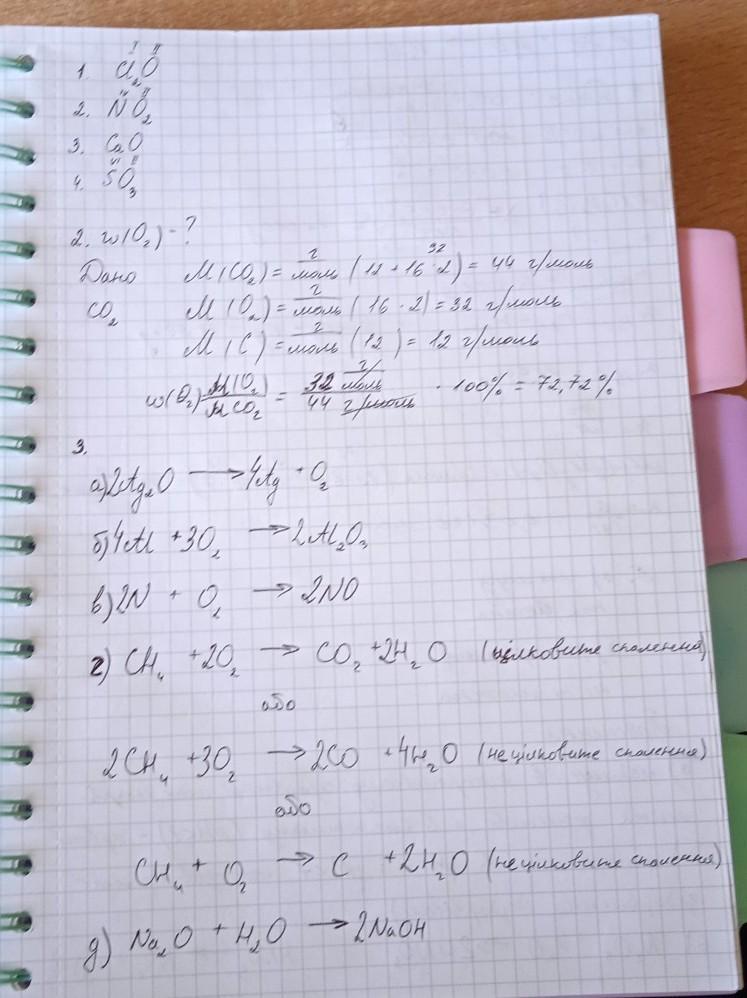 I II
1. Cl₂O
IV II
2. NO₂
3. CaO
VI II
4. SO₃
2. w(O₂) - ?
Дано M(CO₂) = г/моль (12 + 16 · 2) = 44 г/моль
32
CO₂ M(O₂) = г/моль (16 · 2) = 32 г/моль
M(C) = г/моль (12) = 12 г/моль
w(O₂) M(O₂)/M CO₂ = 32 г/моль / 44 г/моль · 100% = 72,72%
3.
а) 2Ag₂O → 4Ag + O₂
б) 4Al + 3O₂ → 2Al₂O₃
в) 2N + O₂ → 2NO
г) CH₄ + 2O₂ → CO₂ + 2H₂O (цілковите спалення)
або
2CH₄ + 3O₂ → 2CO + 4H₂O (нецілковите спалення)
або
CH₄ + O₂ → C + 2H₂O (нецілковите спалення)
д) Na₂O + H₂O → 2NaOH